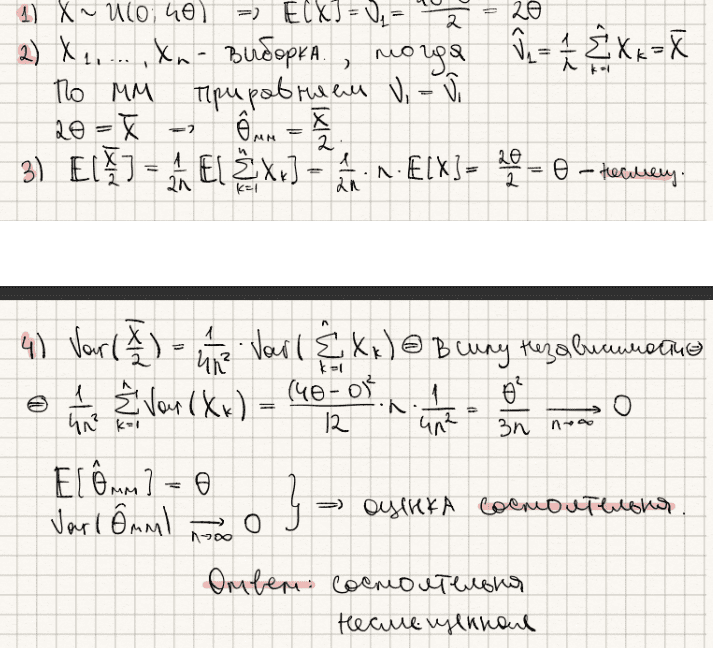 1) X ~ U(0; 4θ) => E[X] = ν₁ = 2 = 2θ
2) X₁, ..., Xₙ - выборка., тогда ν̂₁ = 1/n ∑ₖ₌₁ⁿ Xₖ = X̄
По ММ приравняем ν₁ = ν̂₁
2θ = X̄ => θ̂ₘₘ = X̄/2.
3) E[X̄/2] = 1/2n E[∑ₖ₌₁ⁿ Xₖ] = 1/2n · n · E[X] = 2θ/2 = θ - несмещ.
4) Var(X̄/2) = 1/4n² · Var(∑ₖ₌₁ⁿ Xₖ) ⊜ В силу независимости ⊜
⊜ 1/4n² ∑ₖ₌₁ⁿ Var(Xₖ) = (4θ-0)²/12 · n · 1/4n² = θ²/3n → 0 n→∞
E[θ̂ₘₘ] = θ
Var(θ̂ₘₘ) → 0 n→∞ } => оценка состоятельная.
Ответ: состоятельная
несмещенная